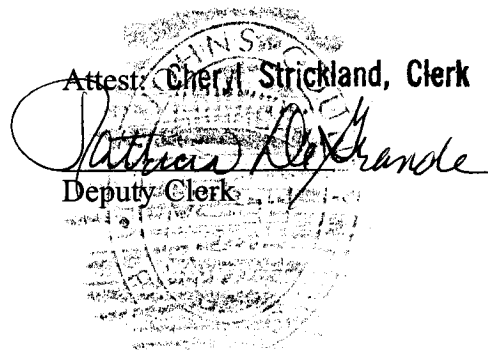 Attest: Cheryl Strickland, Clerk
Patricia DeGrande
Deputy Clerk